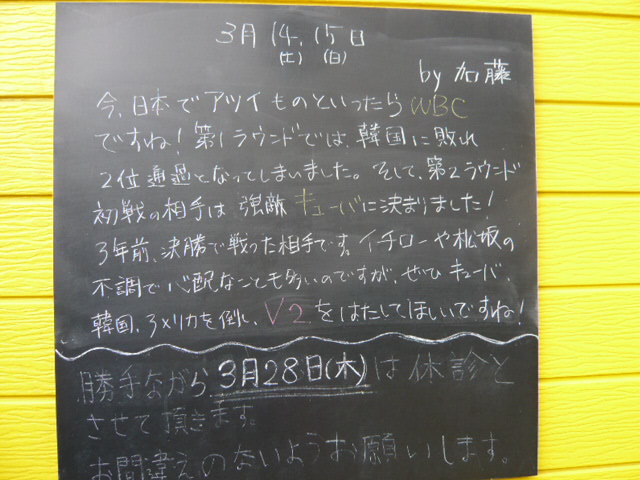 3月 14、15日
(土) (日)
by 加藤
今、日本でアツイものといったらWBC
ですね！第1ラウンドでは、韓国に敗れ
2位通過となってしまいました。そして、第2ラウンド
初戦の相手は強敵キューバに決まりました！
3年前、決勝で戦った相手です。イチローや松坂の
不調で心配なことも多いのですが、ぜひキューバ、
韓国、アメリカを倒し、V2をはたしてほしいですね！
勝手ながら、3月28日(木)は休診と
させて頂きます。
お間違えのないようお願いします。